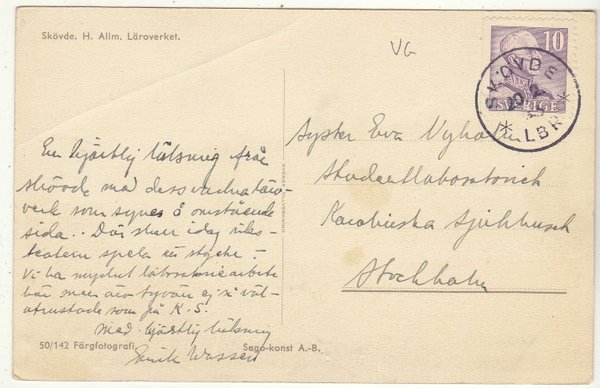 Skövde. H. Allm. Läroverket.
VG
10
SVERIGE
SKÖVDE
LBR
En hjärtlig hälsning från
Skövde med dess vackra läro-
verk som synes å omstående
sida.. Där skall idag riks-
teatern spela ett stycke.
Vi ha mycket laboratoriearbete
här men äro tyvärr ej så väl-
utrustade som på K.S.
Med hjärtlig hälsning
Wassén
50/142 Färgfotografi.
Sago-konst A.-B.
Syster Eva Nyholm
Studentlaboratoriet
Karolinska Sjukhuset
Stockholm